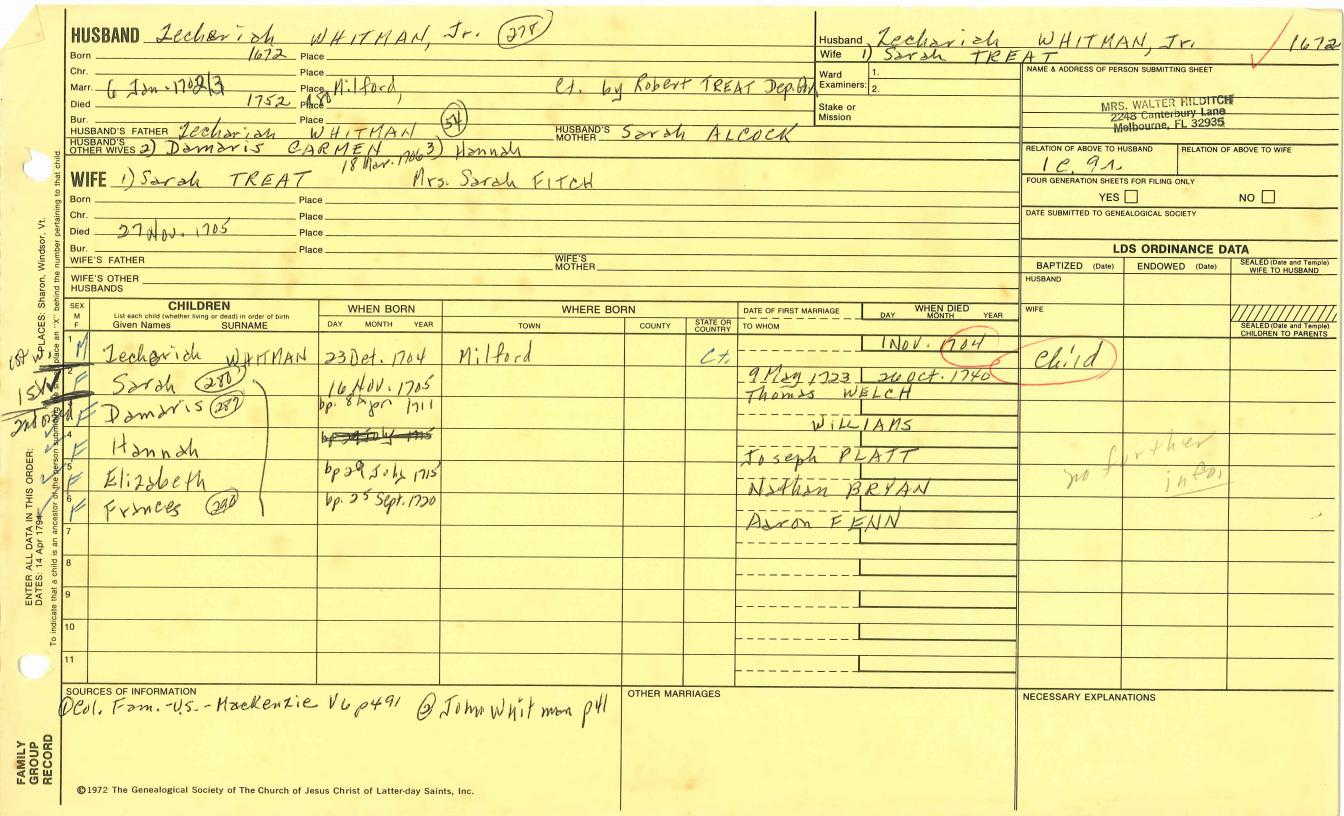 HUSBAND Zechariah WHITMAN, Jr. (278)
Born 1672 Place
Chr. Place
Marr. 6 Jan. 1702/3 Place Milford, Ct. by Robert TREAT Dep. Gov
Died 1752 aged 80 Place
Bur. Place
HUSBAND'S FATHER Zechariah WHITMAN (54) HUSBAND'S MOTHER Sarah ALCOCK
HUSBAND'S OTHER WIVES 2) Damaris CARMEN 18 Mar. 1706 3) Hannah
WIFE 1) Sarah TREAT Mrs. Sarah FITCH
Born Place
Chr. Place
Died 27 Nov. 1705 Place
Bur. Place
WIFE'S FATHER WIFE'S MOTHER
WIFE'S OTHER HUSBANDS
Husband Zechariah WHITMAN, Jr. 1672
Wife 1) Sarah TREAT
Ward Examiners: 1.
2.
Stake or Mission
NAME & ADDRESS OF PERSON SUBMITTING SHEET
MRS. WALTER HILDITCH
2248 Canterbury Lane
Melbourne, FL 32935
RELATION OF ABOVE TO HUSBAND RELATION OF ABOVE TO WIFE
1c. 9r.
FOUR GENERATION SHEETS FOR FILING ONLY
YES NO
DATE SUBMITTED TO GENEALOGICAL SOCIETY
LDS ORDINANCE DATA
BAPTIZED (Date) ENDOWED (Date) SEALED (Date and Temple) WIFE TO HUSBAND
HUSBAND
WIFE
SEALED (Date and Temple) CHILDREN TO PARENTS
SEX M F
CHILDREN
List each child (whether living or dead) in order of birth
Given Names SURNAME
WHEN BORN
DAY MONTH YEAR
WHERE BORN
TOWN COUNTY STATE OR COUNTRY
DATE OF FIRST MARRIAGE
TO WHOM
WHEN DIED
DAY MONTH YEAR
1 M Zechariah WHITMAN 23 Oct. 1704 Milford Ct. 1 Nov. 1704 Child
2 F Sarah (280) 16 Nov. 1705 9 May 1723 26 Oct. 1740
Thomas WELCH
3 F Damaris (287) bp. 8 Apr 1711
WILLIAMS
4 F Hannah bp 29 July 1715
Joseph PLATT
5 F Elizabeth bp 29 July 1715
Nathan BRYAN
6 F Frances bp. 25 Sept. 1720
Aaron FENN
no further info.
7
8
9
10
11
SOURCES OF INFORMATION
① Col. Fam.-U.S.-MacKenzie V6 p491 ② John Whitman p41
OTHER MARRIAGES
NECESSARY EXPLANATIONS
©1972 The Genealogical Society of The Church of Jesus Christ of Latter-day Saints, Inc.
FAMILY GROUP RECORD
ENTER ALL DATA IN THIS ORDER:
DATES: 14 Apr 1794
PLACES: Sharon, Windsor, Vt.